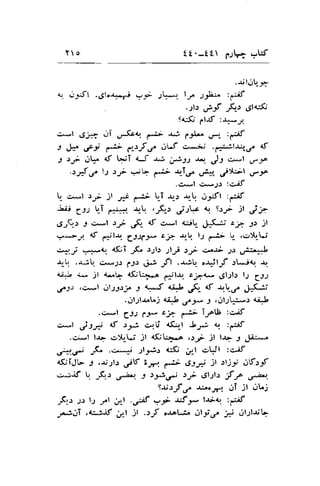 کتاب چهارم ۴۴۱ـ۴۴۰ ۲۱۵
چوپان‌اند.
گفتم: منظور مرا بسیار خوب فهمیده‌ای. اکنون به
نکته‌ای دیگر گوش دار.
پرسید: کدام نکته؟
گفتم: پس معلوم شد خشم به‌عکس آن چیزی است
که می‌پنداشتیم. نخست گمان می‌کردیم خشم نوعی میل و
هوس است ولی بعد روشن شد که آنجا که میان خرد و
هوس اختلافی پیش می‌آید خشم جانب خرد را می‌گیرد.
گفت: درست است.
گفتم: اکنون باید دید آیا خشم غیر از خرد است یا
جزئی از خرد؟ به عبارتی دیگر، باید ببینیم آیا روح فقط
از دو جزء تشکیل یافته است که یکی خرد است و دیگری
تمایلات، یا خشم را باید جزء سوم روح بدانیم که برحسب
طبیعتش در خدمت خرد قرار دارد مگر آنکه به‌سبب تربیت
بد به‌فساد گرائیده باشد. اگر شق دوم درست باشد، باید
روح را دارای سه‌جزء بدانیم همچنانکه جامعه از سه طبقه
تشکیل می‌یابد که یکی طبقه کسبه و مزدوران است، دومی
طبقه دستیاران، و سومی طبقه زمامداران.
گفت: ظاهراً خشم جزء سوم روح است.
گفتم: به شرط اینکه ثابت شود که نیروئی است
مستقل و جدا از خرد، همچنانکه از تمایلات جدا است.
گفت: اثبات این نکته دشوار نیست. مگر نمی‌بینی
کودکان نوزاد از نیروی خشم بهرهٔ کافی دارند، و حال‌آنکه
بعضی هرگز دارای خرد نمی‌شوند و بعضی دیگر با گذشت
زمان از آن بهره‌مند می‌گردند؟
گفتم: به‌خدا سوگند خوب گفتی. این امر را در دیگر
جانداران نیز می‌توان مشاهده کرد. از این گذشته، آن‌شعر